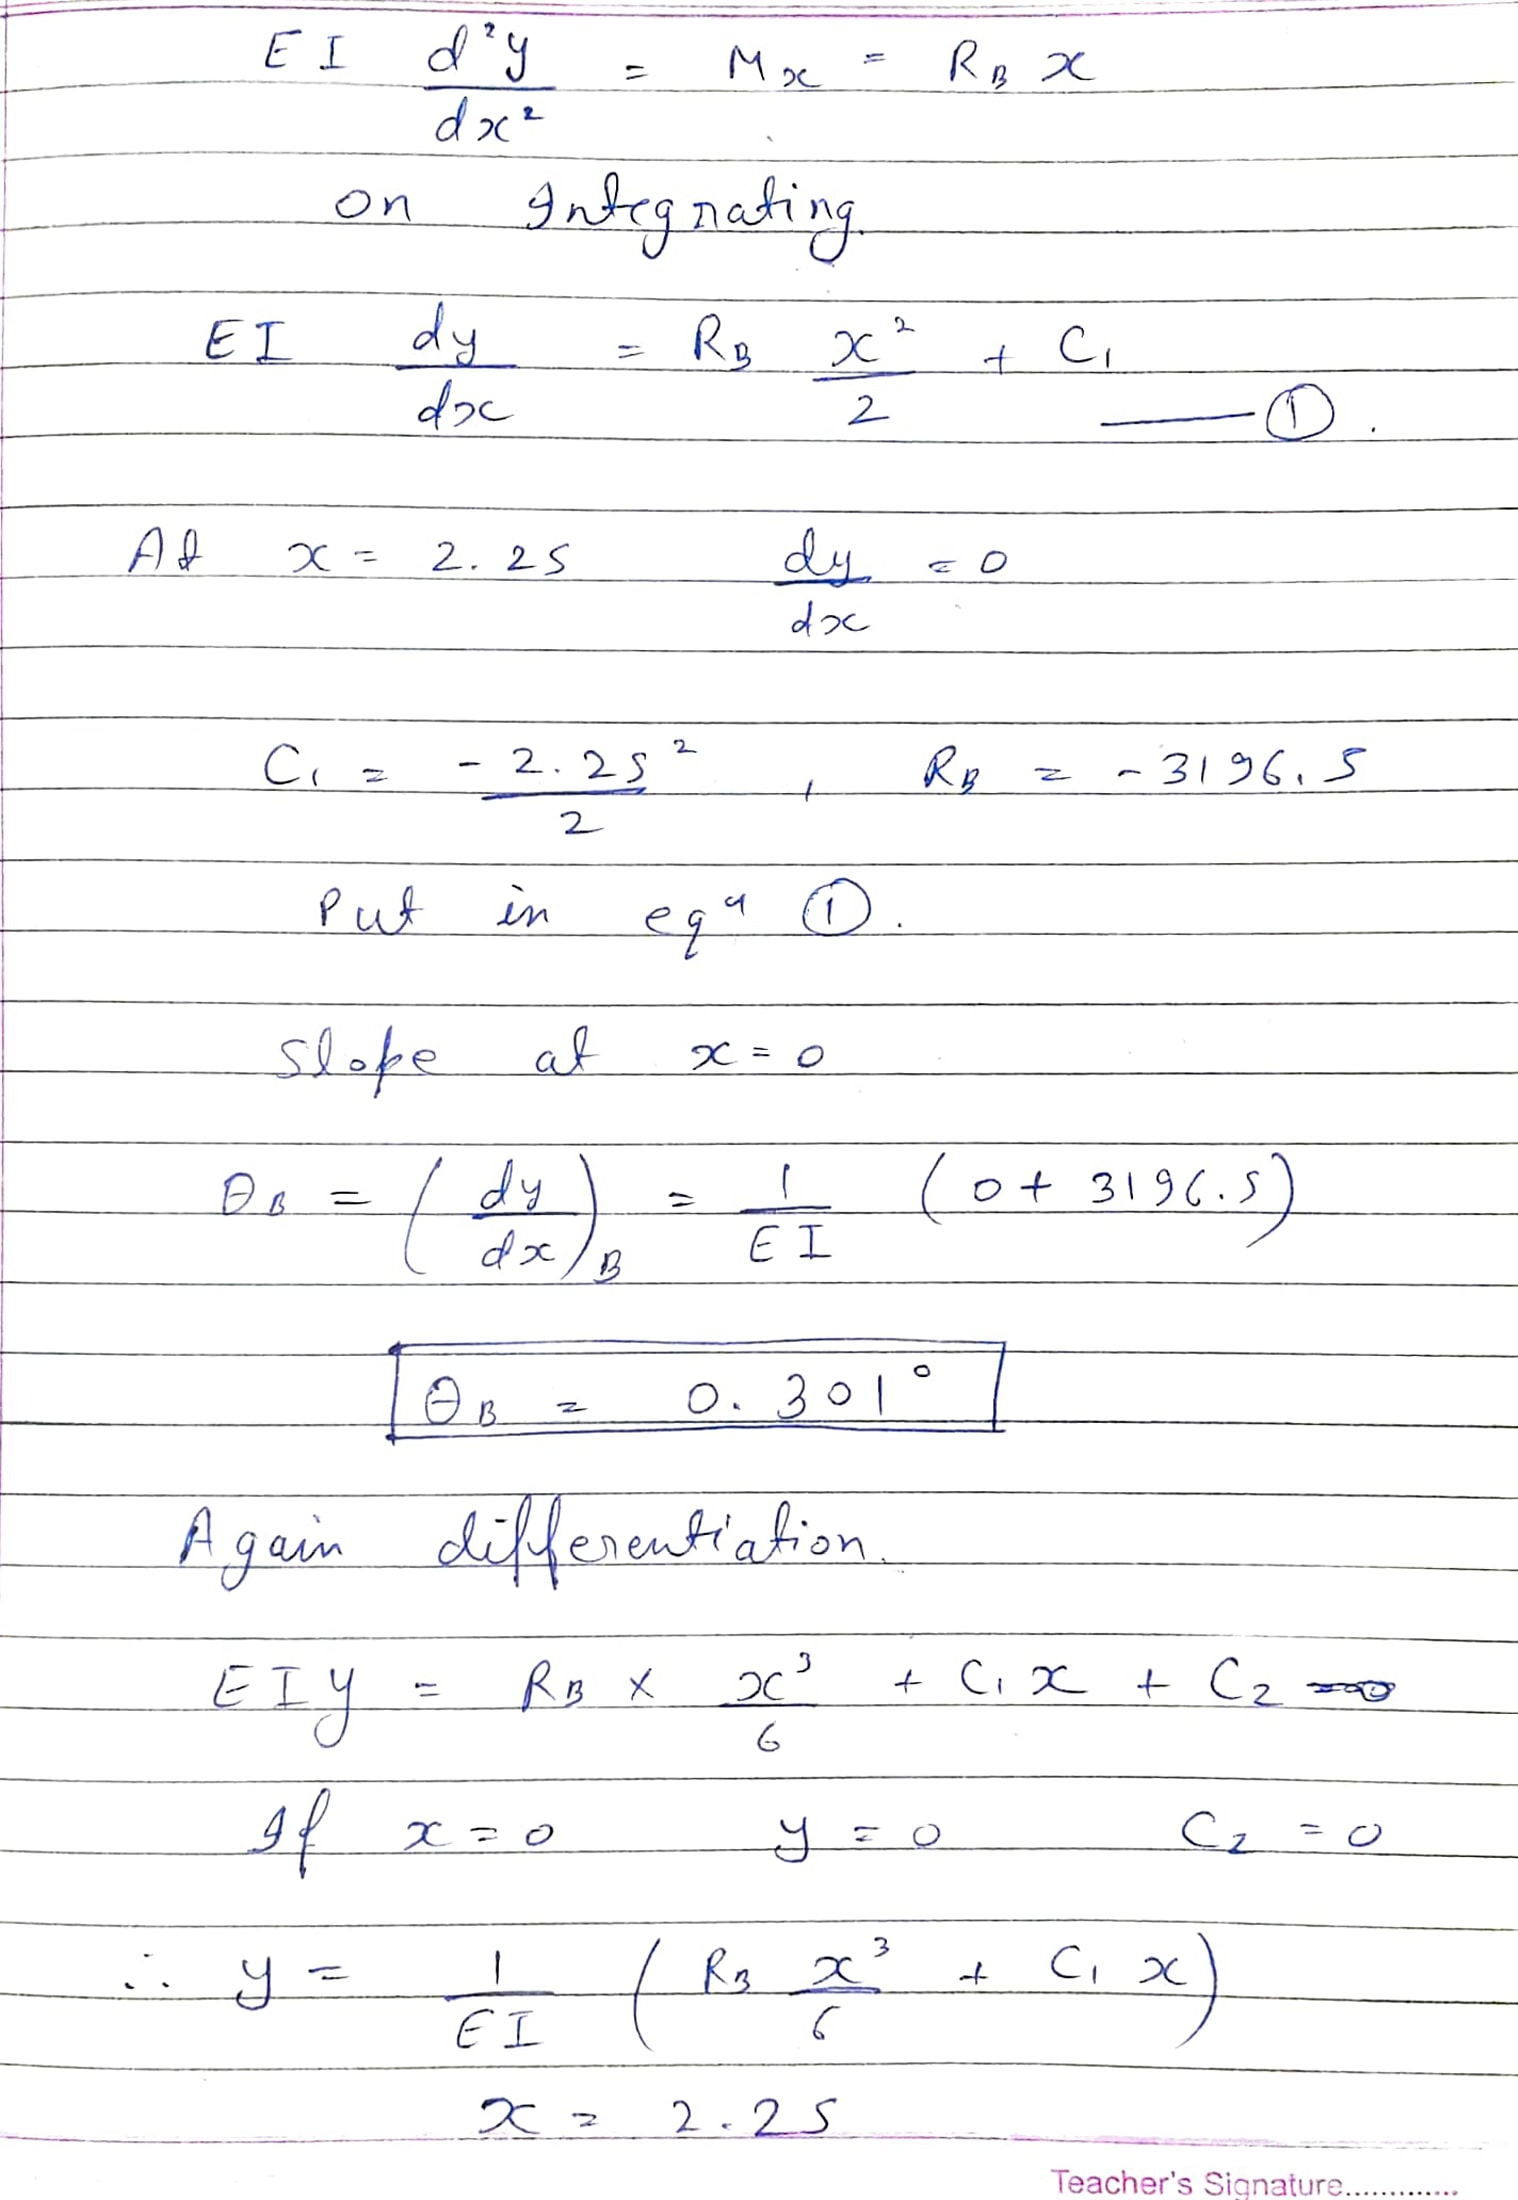 EI d²y/dx² = Mx = R_B x
on Integrating.
EI dy/dx = R_B x²/2 + C₁ —— ①.
At x = 2.25 dy/dx = 0
C₁ = -2.25²/2 , R_B = -3196.5
Put in eqⁿ ①.
Slope at x = 0
θ_B = (dy/dx)_B = 1/EI (0 + 3196.5)
θ_B = 0.301°
Again differentiation.
EIy = R_B × x³/6 + C₁x + C₂
If x = 0 y = 0 C₂ = 0
∴ y = 1/EI (R_B x³/6 + C₁ x)
x = 2.25
Teacher's Signature.............